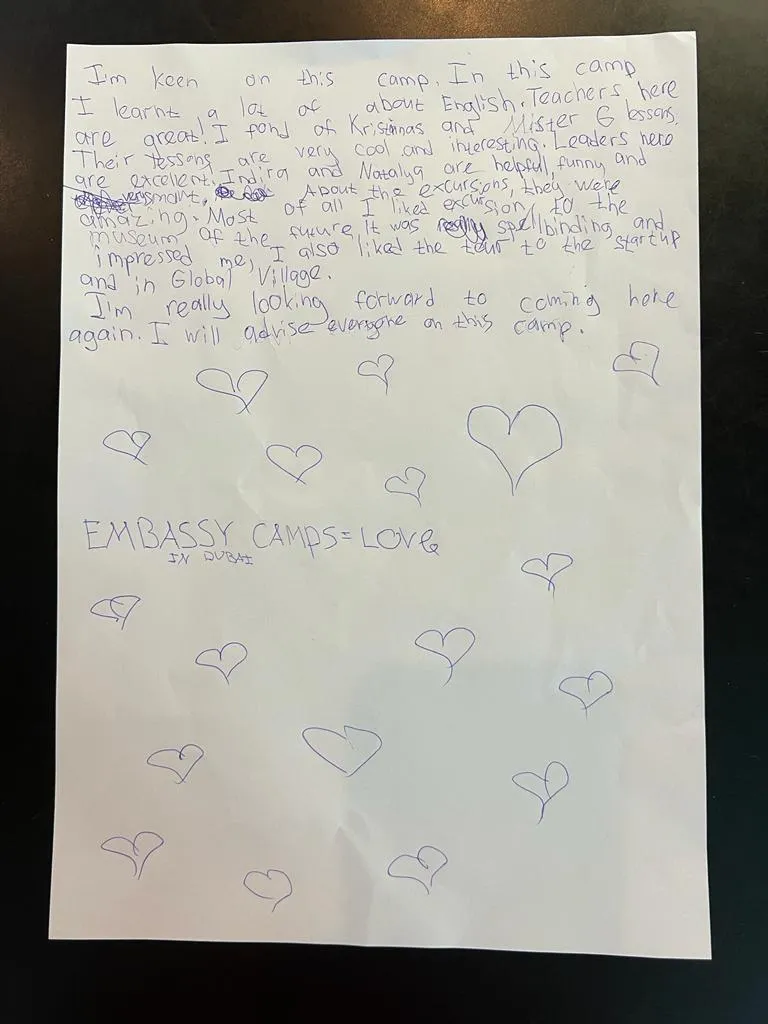 I'm keen on this camp. In this camp
I learnt a lot of about English. Teachers here
are great! I fond of Kristinas and Mister G lessons,
Their lessons are very cool and interesting. Leaders here
are excellent! Indira and Natalya are helpful, funny and
smart. About the excursions, they were
amazing. Most of all I liked excursion to the
museum of the future It was really spellbinding and
impressed me, I also liked the tour to the startup
and in Global Village.
I'm really looking forward to coming here
again. I will advise everyone on this camp.
EMBASSY CAMPS = LOVE
IN DUBAI